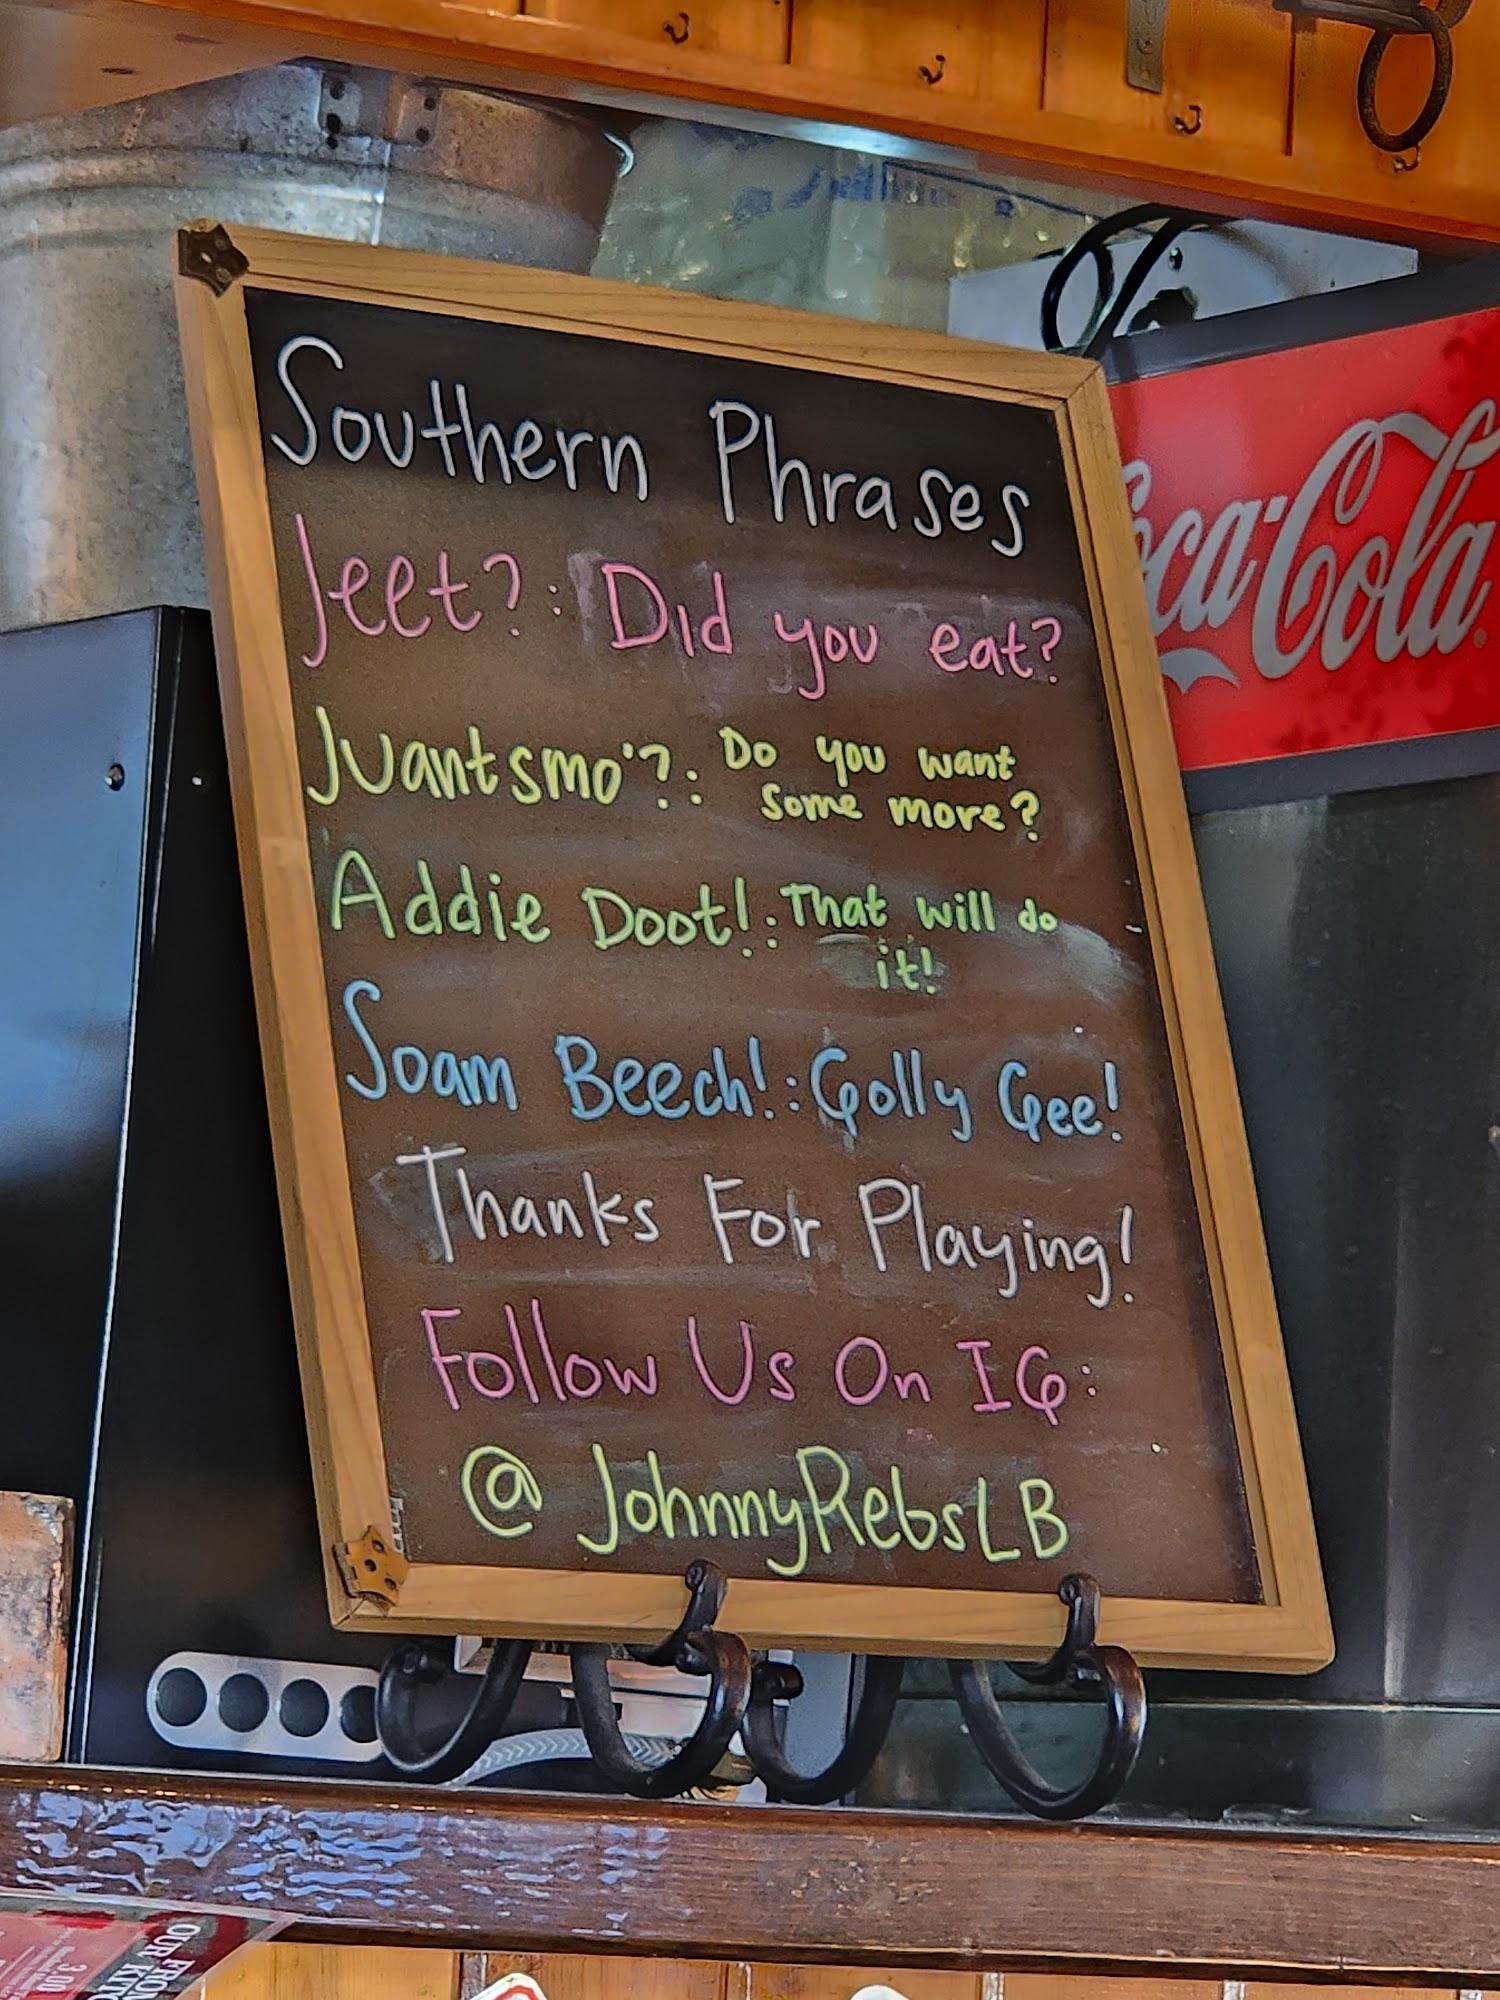 Southern Phrases
Jeet?: Did you eat?
Juantsmo'?: Do you want
some more?
Addie Doot!: That will do
it!
Soam Beech!: Golly Gee!
Thanks For Playing!
Follow Us On IG:
@JohnnyRebsLB
Coca-Cola
3.00
OUR